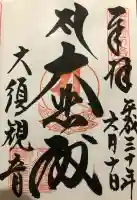 奉拝
令和三年
六月十日
大悲殿
大須観音